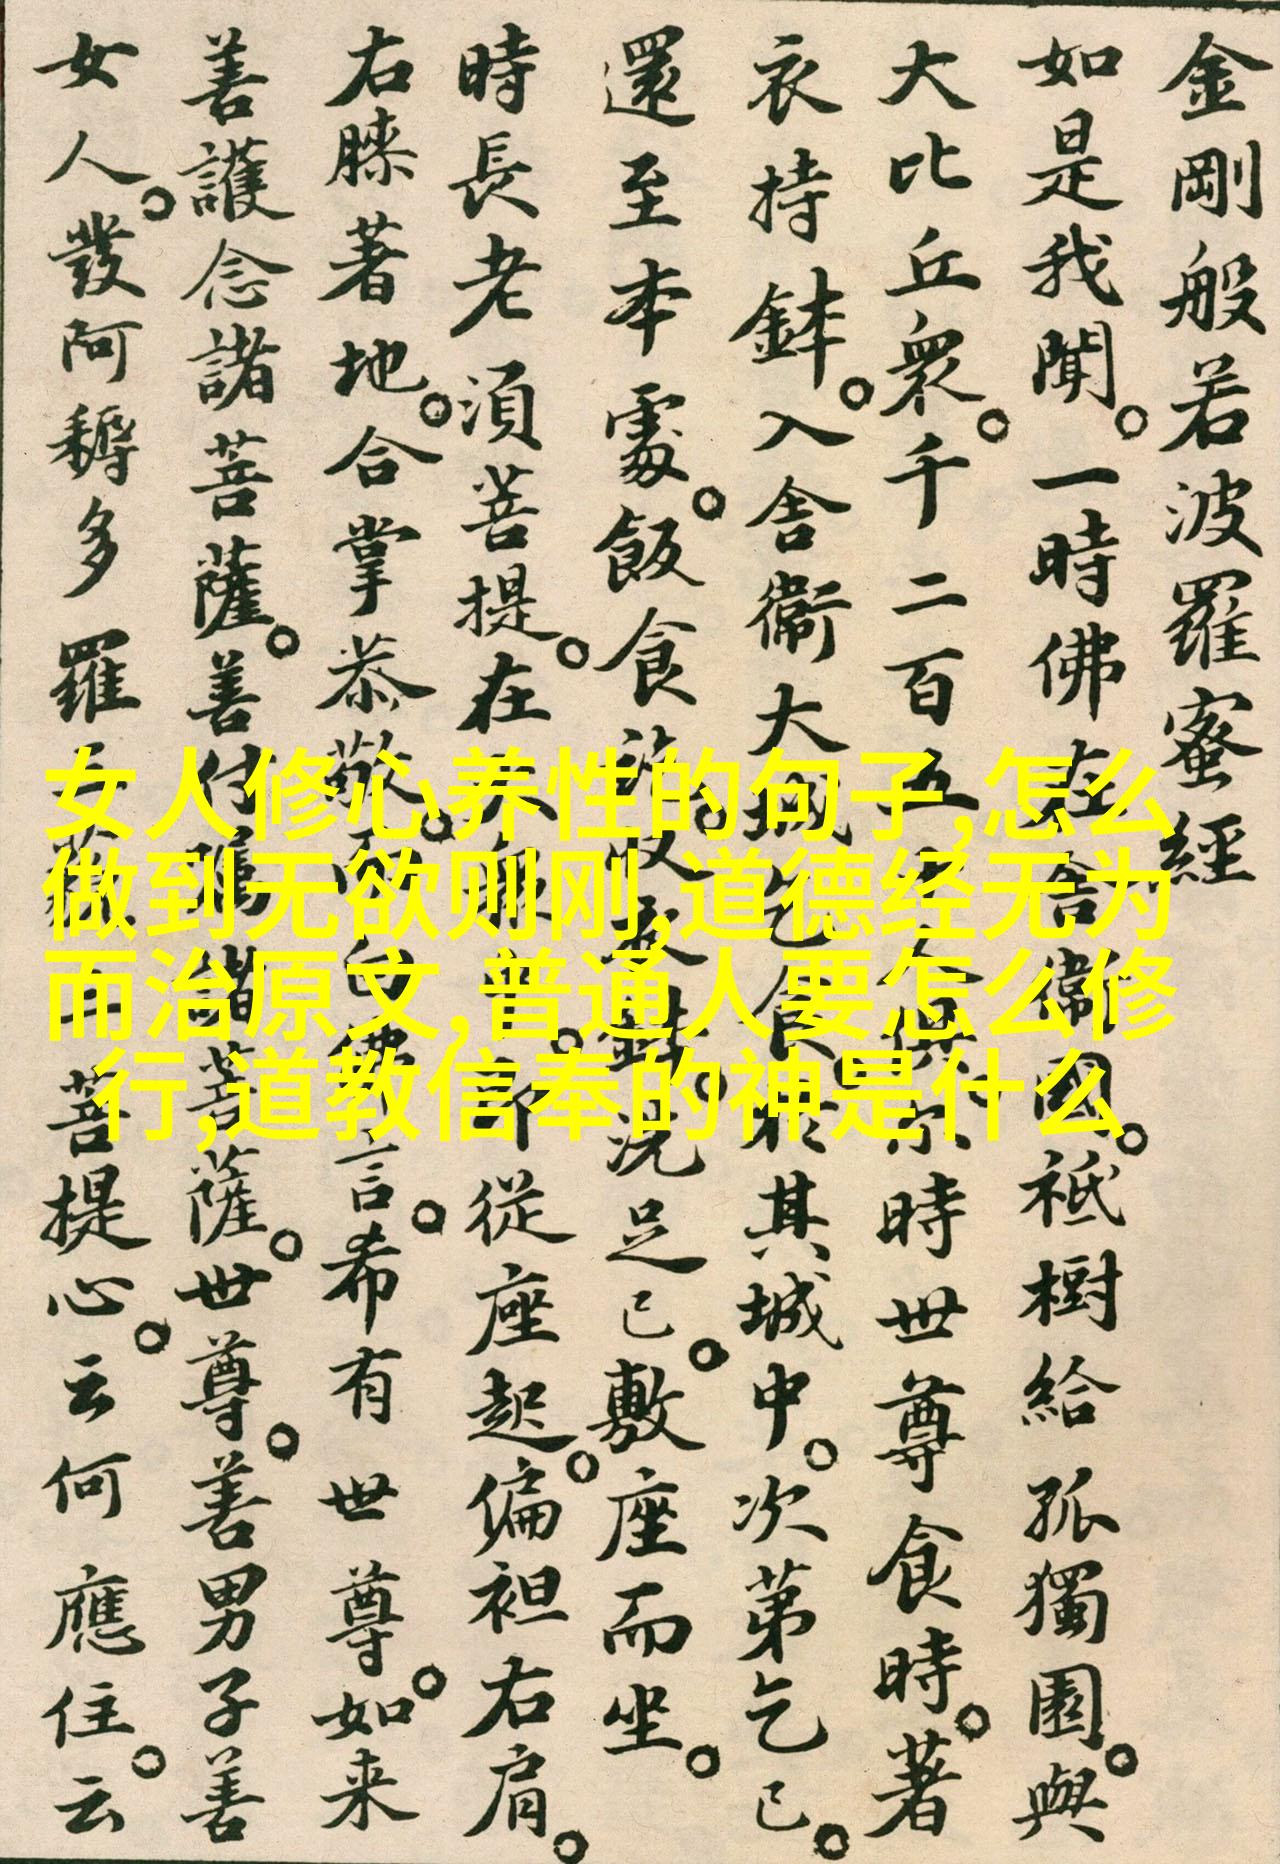 金剛般若波羅蜜經
如是我聞。一時佛在舍衞國。祇樹給孤獨園。與
大比丘衆。千二百五十人俱。尒時世尊食時。著
衣持鉢。入舍衞大城乞食。於其城中。次第乞已。
還至本處。飯食訖。收衣鉢。洗足已。敷座而坐。
時長老須菩提。在大衆中。即從座起。偏袒右肩。
右膝著地。合掌恭敬。而白佛言。希有世尊。如来
善護念諸菩薩。善付囑諸菩薩。世尊。善男子善
女人。發阿耨多羅三藐三菩提心。云何應住。云
女人修心养性的句子,怎么
做到无欲则刚,道德经无为
而治原文,普通人要怎么修
行,道教信奉的神是什么